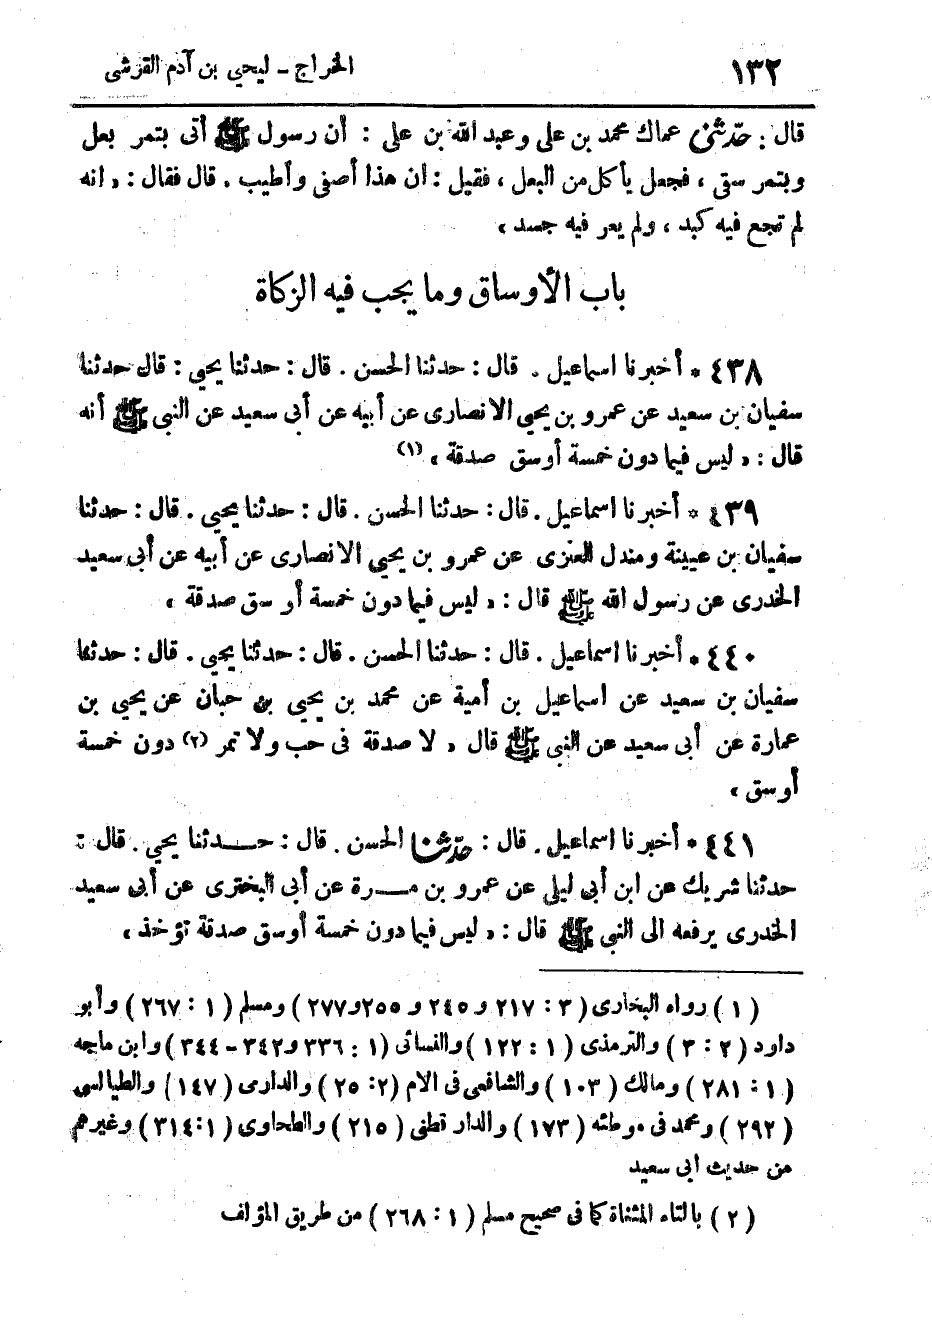 ١٣٢ الخراج - ليحي بن آدم القرشى
قال: حدّثنى عماك محمد بن على وعبد الله بن على : أن رسول ﷺ أتى بتمر بعل
وبتمر سقى ، فجعل يأكل من البعل ، فقيل : ان هذا أصفى وأطيب . قال فقال : « انه
لم تجع فيه كبد ، ولم يعر فيه جسد »
باب الأوساق وما يجب فيه الزكاة
٤٣٨ * أخبرنا اسماعيل . قال : حدثنا الحسن . قال : حدثنا يحيي : قال حدثنا
سفيان بن سعيد عن عمرو بن يحيي الانصارى عن أبيه عن أبى سعيد عن النبى ﷺ أنه
قال : « ليس فيما دون خمسة أوسق صدقة » (١)
٤٣٩ * أخبرنا اسماعيل . قال : حدثنا الحسن . قال : حدثنا يحيي . قال : حدثنا
سفيان بن عيينة ومندل العنزى عن عمرو بن يحيي الانصارى عن أبيه عن أبى سعيد
الخدرى عن رسول الله ﷺ قال : « ليس فيما دون خمسة أوسق صدقة »
٤٤٠ * أخبرنا اسماعيل . قال : حدثنا الحسن . قال : حدثنا يحيي . قال : حدثنا
سفيان بن سعيد عن اسماعيل بن أمية عن محمد بن يحيي بن حبان عن يحيي بن
عمارة عن أبى سعيد عن النبى ﷺ قال « لا صدقة فى حب ولا تمر (٢) دون خمسة
أوسق »
٤٤١ * أخبرنا اسماعيل . قال : حدّثنا الحسن . قال : حـــدثنا يحيي . قال :
حدثنا شريك عن ابن أبى ليلى عن عمرو بن مـــرة عن أبى البخترى عن أبى سعيد
الخدرى يرفعه الى النبى ﷺ قال : « ليس فيما دون خمسة أوسق صدقة تؤخذ »
( ١ ) رواه البخارى ( ٣ : ٢١٧ و ٢٤٥ و ٢٥٥ و ٢٧٧ ) ومسلم ( ١ : ٢٦٧ ) وأبو
داود ( ٢ : ٣ ) والترمذى ( ١ : ١٢٢ ) والنسائى ( ١ : ٣٣٦ و ٣٤٢ - ٣٤٤ ) وابن ماجه
( ١ : ٢٨١ ) ومالك ( ١٠٣ ) والشافعى فى الام ( ٢ : ٢٥ ) والدارى ( ١٤٧ ) والطيالسى
( ٢٩٢ ) ومحمد فى موطئه ( ١٧٣ ) والدار قطنى ( ٢١٥ ) والطحاوى ( ١ : ٣١٤ ) وغيرهم
من حديث أبى سعيد
( ٢ ) بالتاء المثناة كما فى صحيح مسلم ( ١ : ٢٦٨ ) من طريق المؤلف